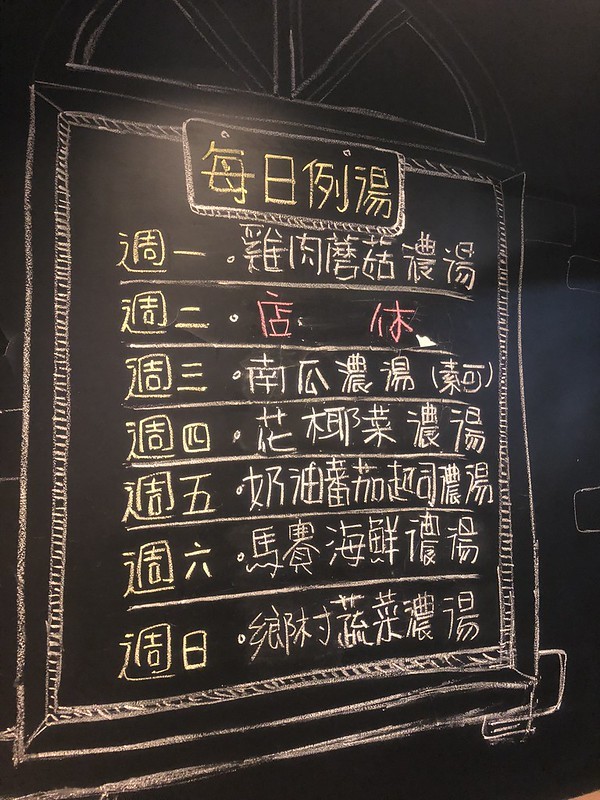 每日例湯
週一 . 雞肉蘑菇濃湯
週二 。 店 休
週三 . 南瓜濃湯 (素可)
週四 . 花椰菜濃湯
週五 . 奶油蕃茄起司濃湯
週六 . 馬賽海鮮濃湯
週日 . 鄉村蔬菜濃湯